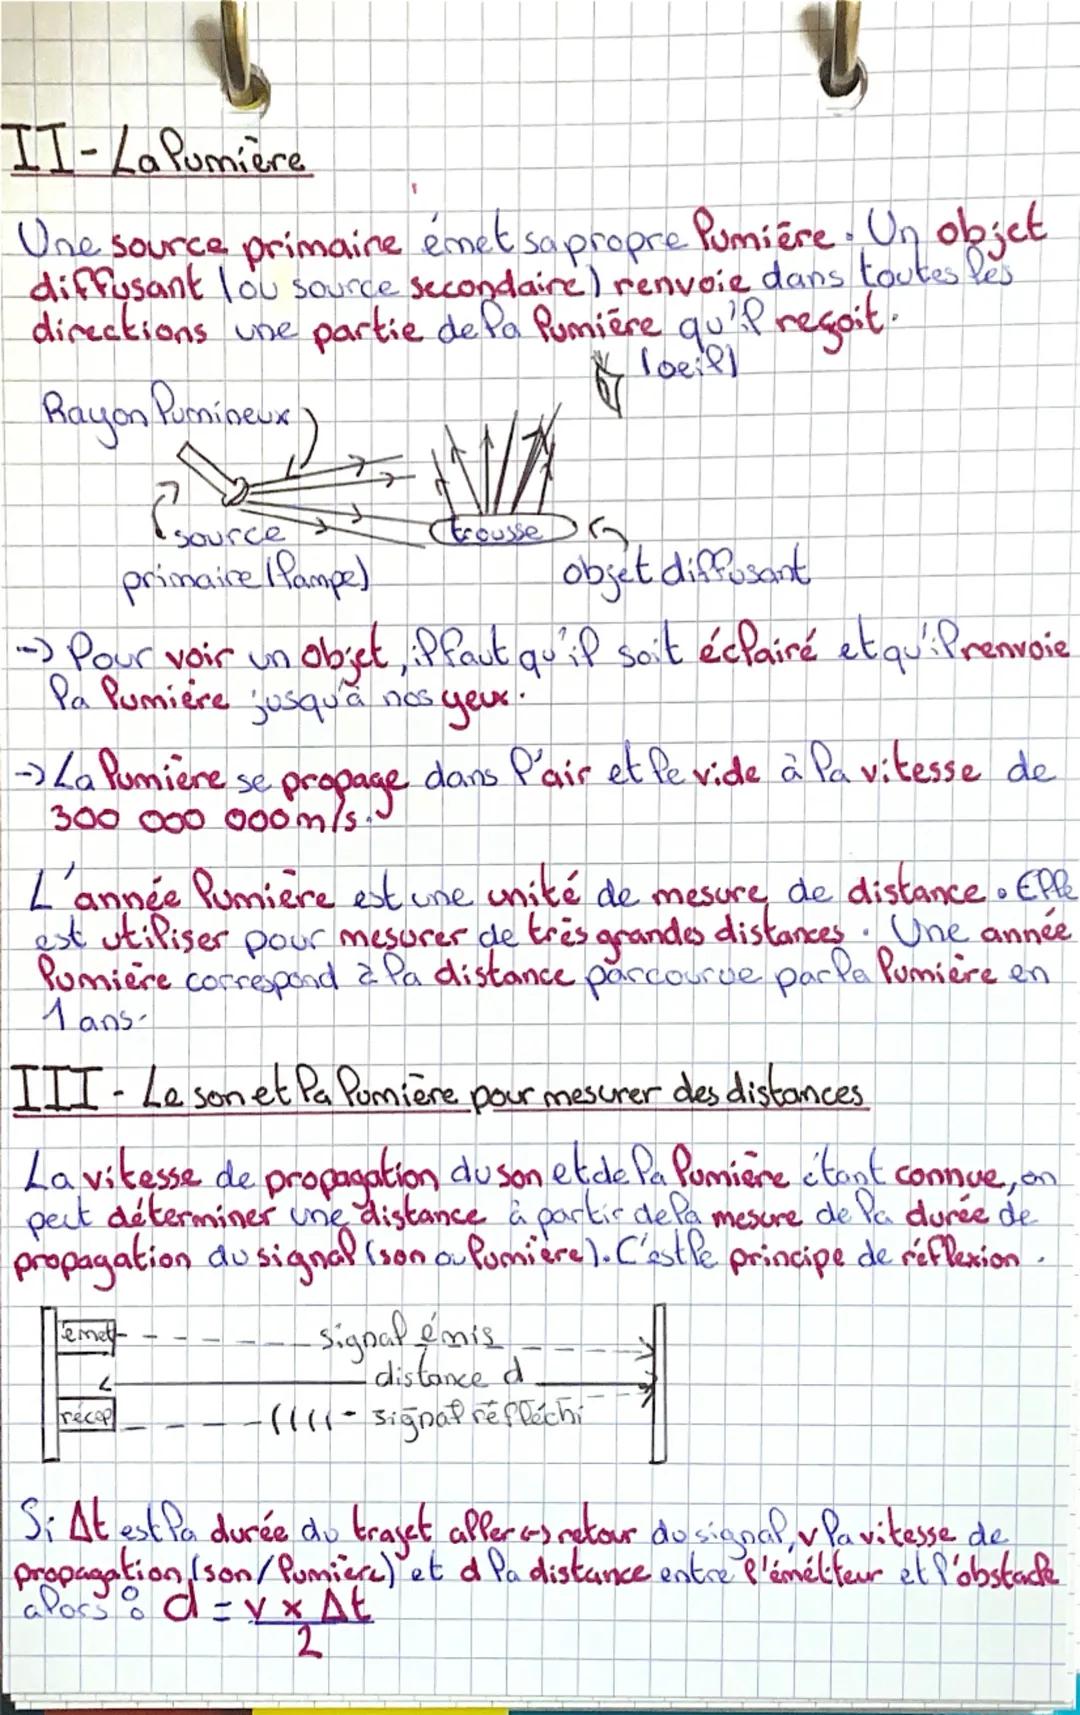 II - La lumière
Une source primaire émet sa propre lumière. Un objet
diffusant (ou source secondaire) renvoie dans toutes les
directions une partie de la lumière qu'il reçoit.
(oeil)
Rayon lumineux
source
primaire (lampe)
trousse
objet diffusant
-> Pour voir un objet, il faut qu'il soit éclairé et qu'il renvoie
la lumière jusqu'à nos yeux.
-> La lumière se propage dans l'air et le vide à la vitesse de
300 000 000 m/s.
L'année lumière est une unité de mesure de distance. Elle
est utiliser pour mesurer de très grandes distances. Une année
lumière correspond à la distance parcourue par la lumière en
1 ans.
III - Le son et la lumière pour mesurer des distances
La vitesse de propagation du son et de la lumière étant connue, on
peut déterminer une distance à partir de la mesure de la durée de
propagation du signal (son ou lumière). C'est le principe de réflexion.
émet
signal émis
distance d
récep
signal réfléchi
Si Δt est la durée du trajet aller <-> retour du signal, v la vitesse de
propagation (son/lumière) et d la distance entre l'émétteur et l'obstacle
alors : d = v x Δt
2